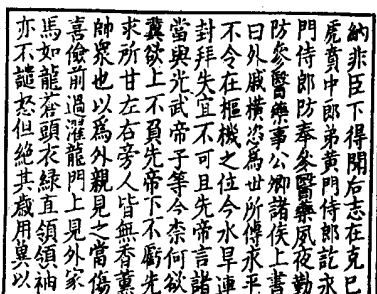 納非臣下得聞后志在克己
虎賁中郎弟黃門侍郎訖永
門侍郎防奉參醫藥夙夜勤
防參醫藥事公卿諸侯上書
曰外戚橫恣為世所傳永平
不令在樞機之位今水旱連
封拜失宜不可且先帝言諸
當與光武帝子等今柰何欲
冀欲上不負先帝下不虧先
求所甘左右旁人皆無香薰
帥衆也以爲外親見之當傷
喜儉前過濯龍門上見外家
馬如龍蒼頭衣綠直領領袖
亦不譴怒但絕其歲用冀以